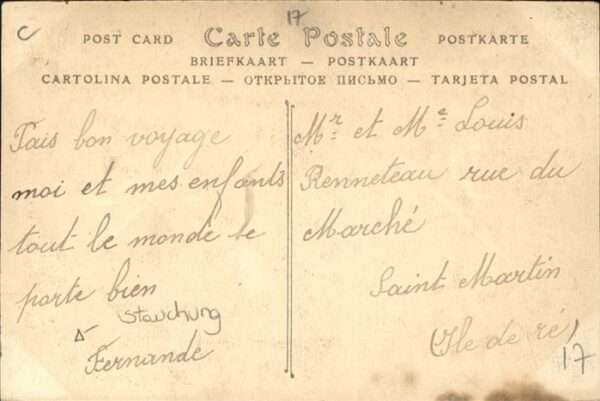 C
17
POST CARD Carte Postale POSTKARTE
BRIEFKAART — POSTKAART
CARTOLINA POSTALE — ОТКРЫТОЕ ПИСЬМО — TARJETA POSTAL
Fais bon voyage
moi et mes enfants
tout le monde se
porte bien
Stauchung
Fernande
Mr et Me Louis
Renneteau rue du
Marché
Saint Martin
(Ile de ré)
17